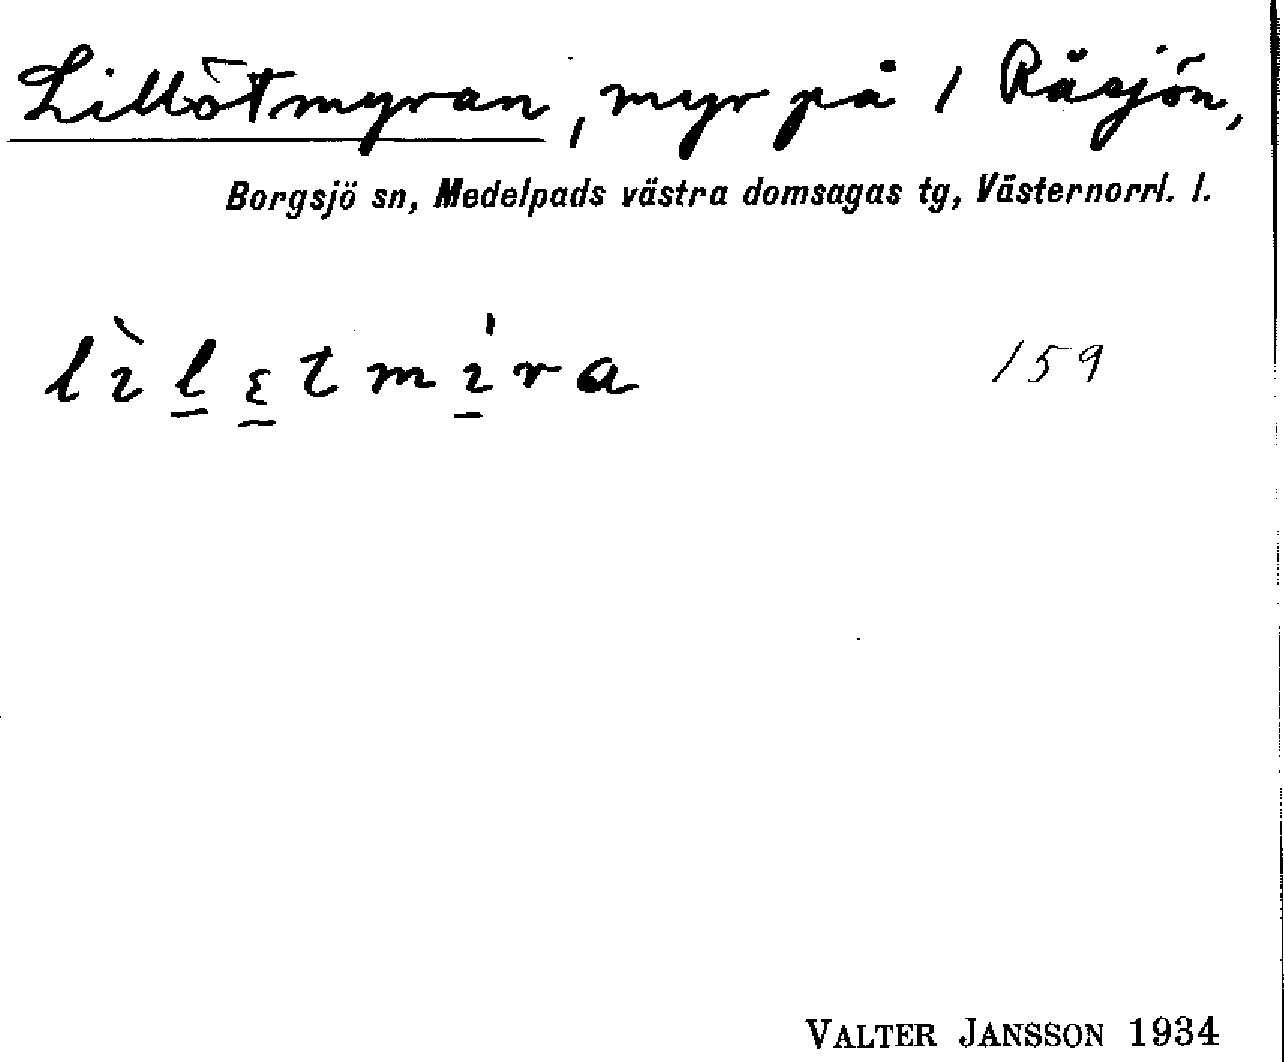 Lillötmyran, myr på 1 Råsjön,
Borgsjö sn, Medelpads västra domsagas tg, Västernorrl. l.
159
VALTER JANSSON 1934